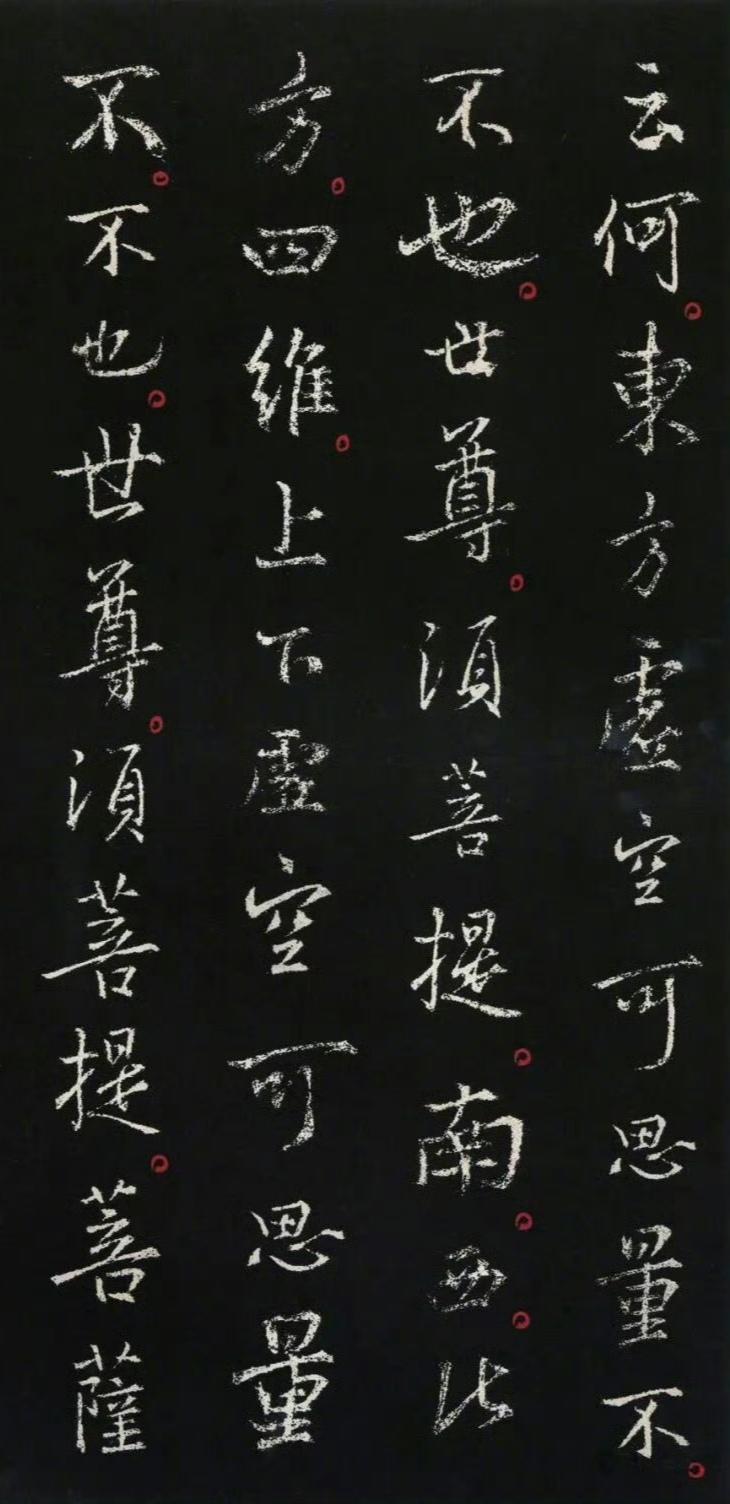 云何東方虛空可思量不
不也世尊須菩提南西北
方四維上下虛空可思量
不不也世尊須菩提菩薩